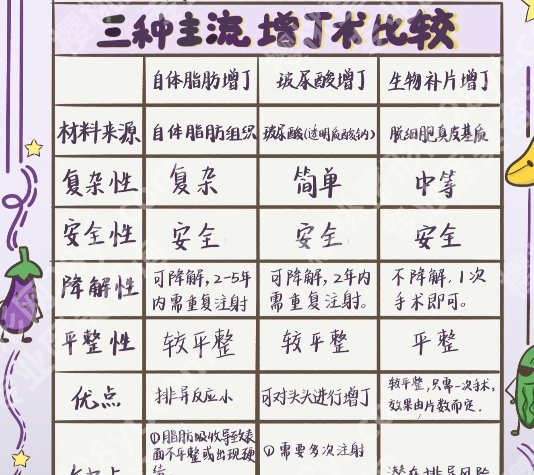 三种主流增丁术比较
自体脂肪增丁 玻尿酸增丁 生物补片增丁
材料来源 自体脂肪组织 玻尿酸(透明质酸钠) 脱细胞真皮基质
复杂性 复杂 简单 中等
安全性 安全 安全 安全
降解性 可降解,2-5年 可降解,2年内 不降解,1次
内需重复注射 需重复注射。 手术即可。
平整性 较平整 较平整 平整
优点 排异反应小 可对头头进行增丁 较平整,只需一次手术,
效果由片数而定.
①脂肪吸收导致表
面不平整或出现硬 ①需要多次注射
潜在排异风险